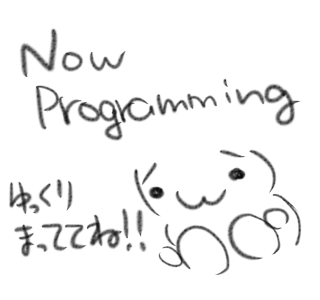 Now
Programming
ゆっくり
まっててね!!